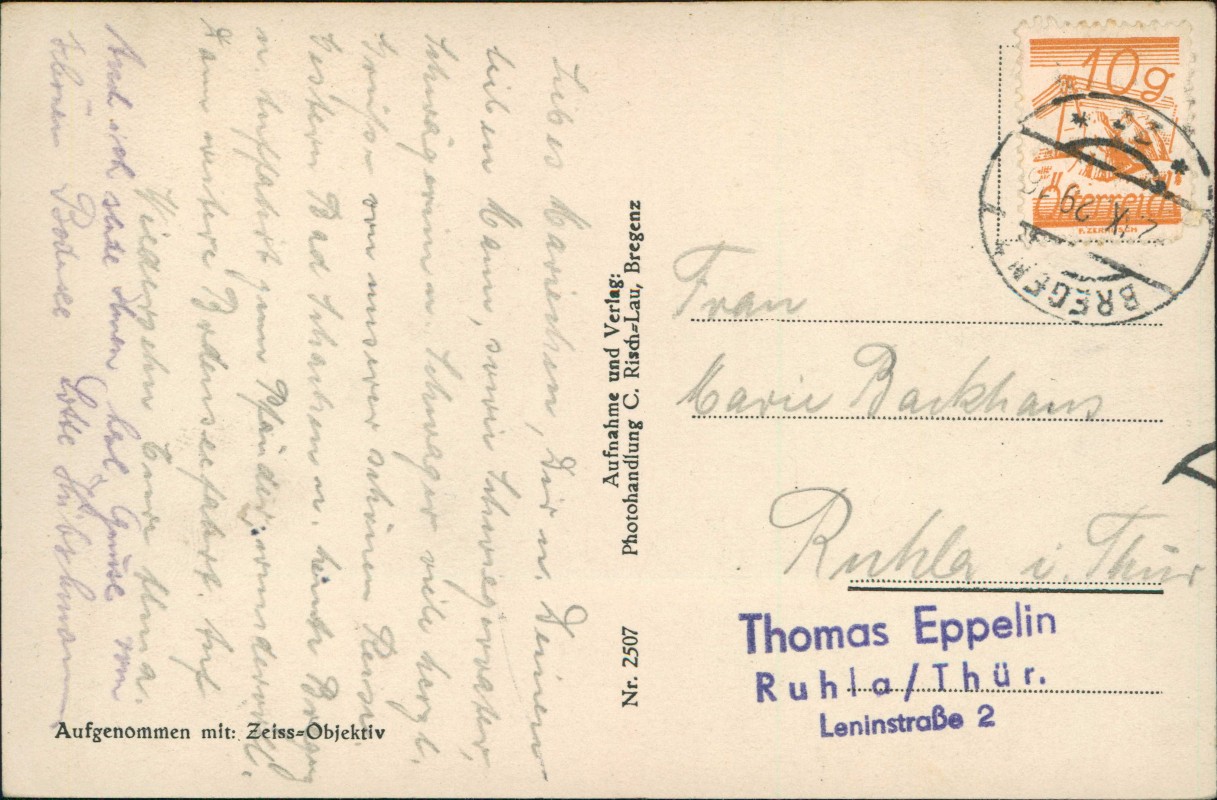 Liebes Mariechen, Dir u. Deinen
lieben Mann, sowie Schwiegervater,
Schwägerin u. Schwager viele herzl.
Grüße von unserer schönen Reise.
Gestern Bad Schachen u. heute Bregenz
u. Auffahrt zum Pfänder, wundervoll.
Dann weitere Bodenseefahrt. Auf
Wiedersehn Eure
Auch ich sende Ihnen Grüsse vom
schönen Bodensee Lotte
Aufgenommen mit: Zeiss=Objektiv
Nr. 2507
Aufnahme und Verlag:
Photohandlung C. Risch=Lau, Bregenz
10g
Österreich
BREGENZ
2.IX.29
Frau
Marie Backhaus
Ruhla i. Thür
Thomas Eppelin
Ruhla/Thür.
Leninstraße 2